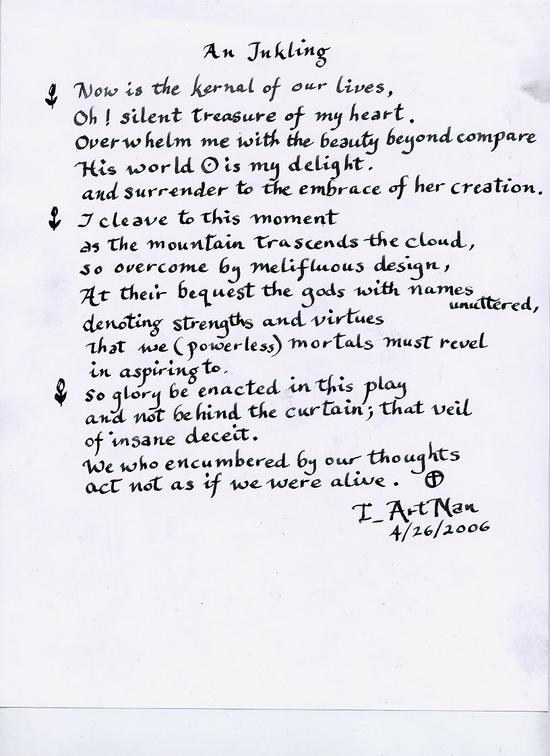 An Inkling
Now is the kernal of our lives,
Oh! silent treasure of my heart.
Overwhelm me with the beauty beyond compare
His world is my delight.
and surrender to the embrace of her creation.
I cleave to this moment
as the mountain trascends the cloud,
so overcome by melifluous design,
At their bequest the gods with names
unuttered,
denoting strengths and virtues
that we (powerless) mortals must revel
in aspiring to.
So glory be enacted in this play
and not behind the curtain; that veil
of insane deceit.
We who encumbered by our thoughts
act not as if we were alive.
I_ArtMan
4/26/2006